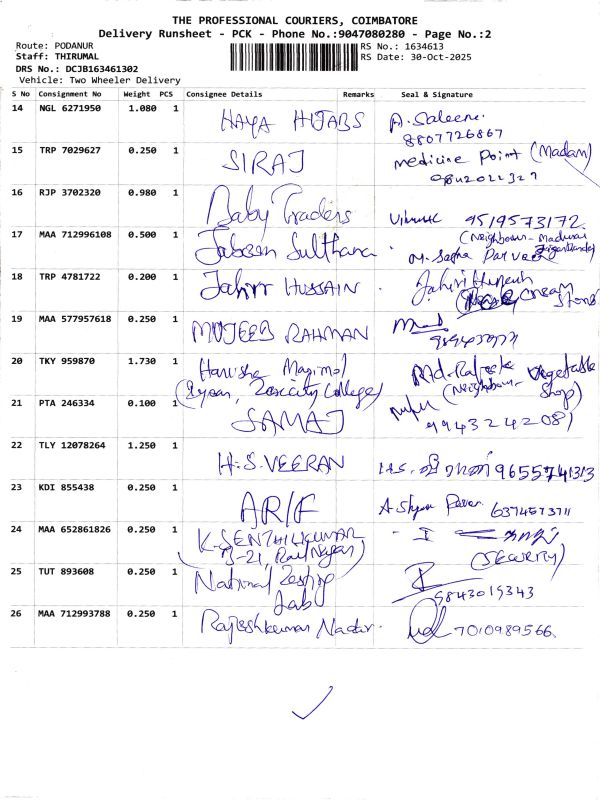 THE PROFESSIONAL COURIERS, COIMBATORE
Delivery Runsheet - PCK - Phone No.:9047080280 - Page No.:2
Route: PODANUR RS No.: 1634613
Staff: THIRUMAL RS Date: 30-Oct-2025
DRS No.: DCJB163461302
Vehicle: Two Wheeler Delivery
S No Consignment No Weight PCS Consignee Details Remarks Seal & Signature
14 NGL 6271950 1.080 1 HAYA HIJABS A. Saleem
8807726867
15 TRP 7029627 0.250 1 SIRAJ medicine Point (Madam)
9842022327
16 RJP 3702320 0.980 1 Baby Traders 9519573172
17 MAA 712996108 0.500 1 Jabeen Sulthana (Neighbour-
18 TRP 4781722 0.200 1 Jahir HUSSAIN
Cream Stone
19 MAA 577957618 0.250 1 MUJEEB RAHMAN
20 TKY 959870 1.730 1 Harusha
(Neighbour- Vegetable Shop)
21 PTA 246334 0.100 1 SAMAJ 9943242081
22 TLY 12078264 1.250 1 H.S.VEERAN 9655741313
23 KDI 855438 0.250 1 ARIF 6374573711
24 MAA 652861826 0.250 1 K.SENTHILKUMAR
B-21, Rail Nagar) (Security)
25 TUT 893608 0.250 1 National Testing
Lab 9843019343
26 MAA 712993788 0.250 1 Rajeshkumar Nadar. 7010989566.